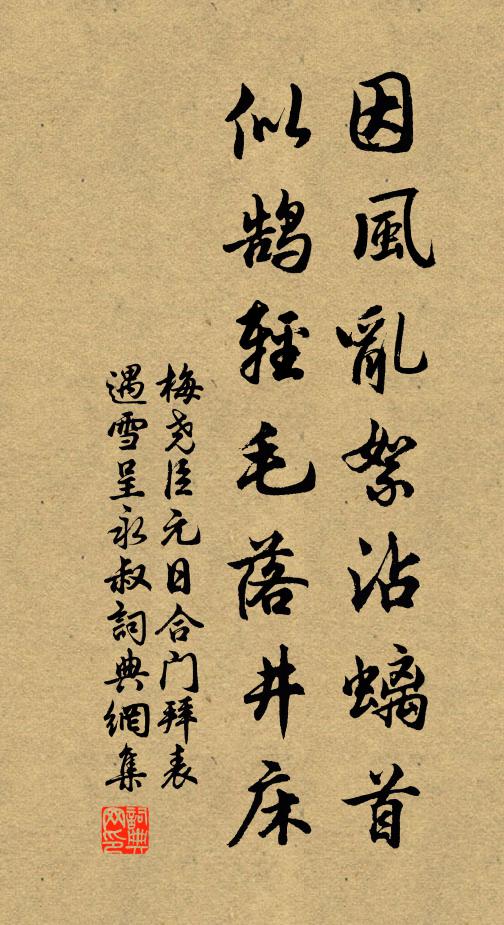 因風亂絮沾螭首
似鵠輕毛落井床
梅尧臣元日合门拜表
遇雪呈永叔詞典網集
詞典网印